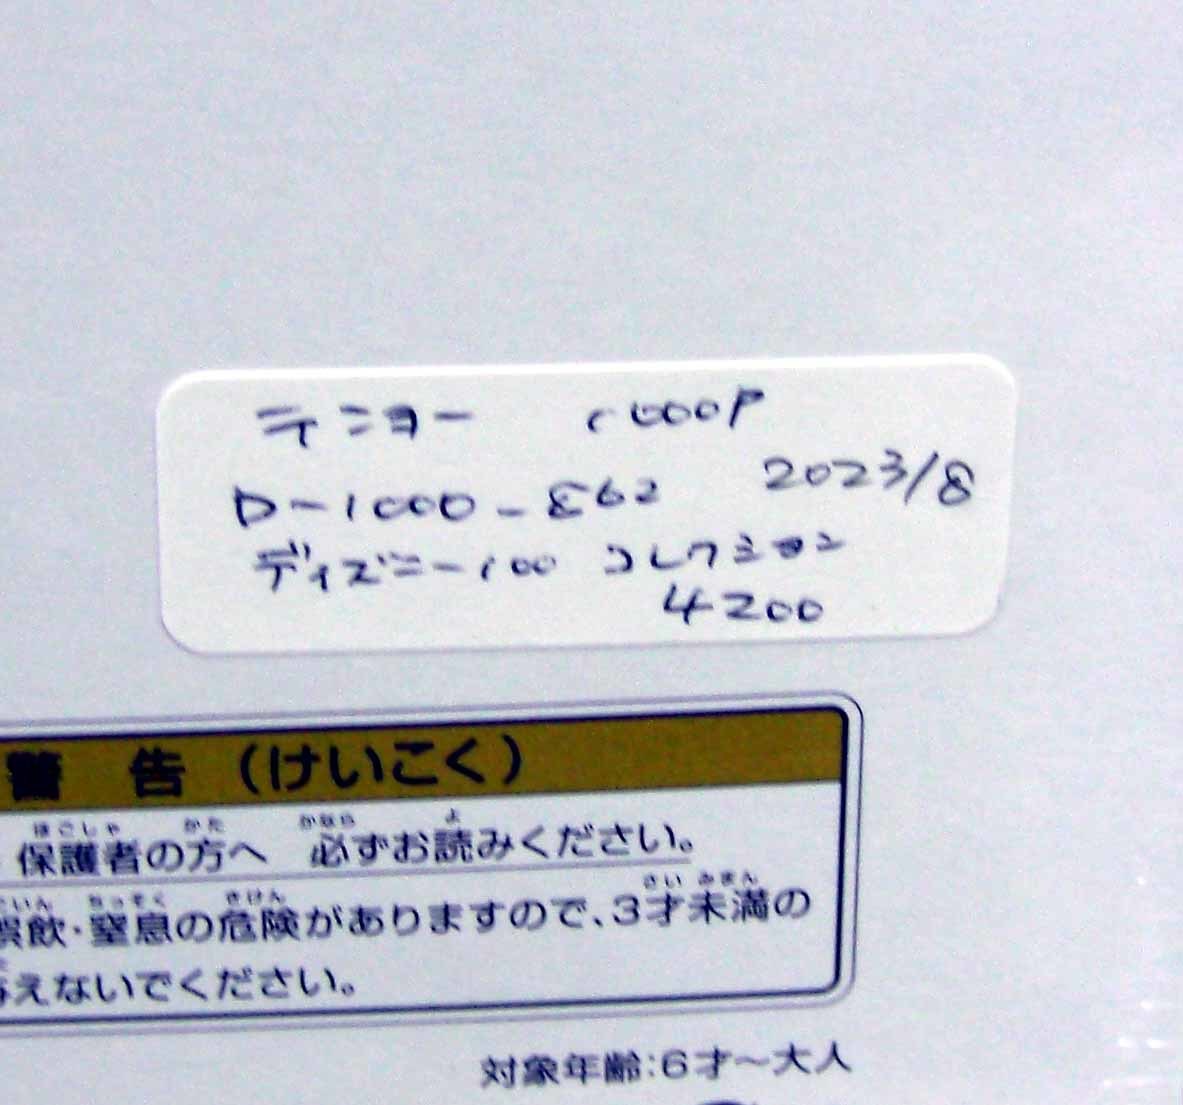 テニヨー 1000P
D-1000-862 2023/8
ディズニー100 コレクション
4200
警 告 (けいこく)
ほごしゃ かた かなら よ
保護者の方へ 必ずお読みください。
ごいん ちっそく きけん さい みまん
誤飲・窒息の危険がありますので、3才未満の
えないでください。
対象年齢:6才～大人